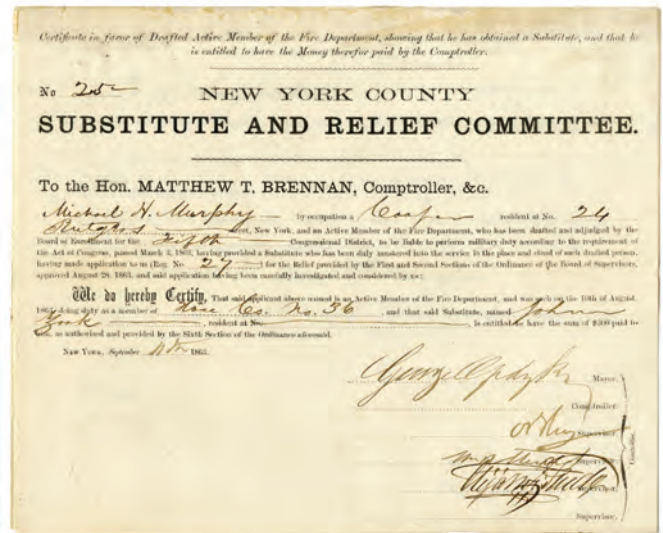 Certificate in favor of Drafted Active Member of the Fire Department, showing that he has obtained a Substitute, and that he
is entitled to have the Money therefor paid by the Comptroller.
No 25
NEW YORK COUNTY
SUBSTITUTE AND RELIEF COMMITTEE.
To the Hon. MATTHEW T. BRENNAN, Comptroller, &c.
Michael H. Murphy by occupation a Cooper resident at No. 24
Rutgers street, New York, and an Active Member of the Fire Department, who has been drafted and adjudged by the
Board of Enrollment for the Fifth Congressional District, to be liable to perform military duty according to the requirement of
the Act of Congress, passed March 3, 1863, having provided a Substitute who has been duly mustered into the service in the place and stead of such drafted person,
having made application to us (Reg. No. 27) for the Relief provided by the First and Second Sections of the Ordinance of the Board of Supervisors,
approved August 28, 1863, and said application having been carefully investigated and considered by us;
We do hereby Certify, That said applicant above named is an Active Member of the Fire Department, and was such on the 10th of August,
1863, doing duty as a member of Hose Co. No. 36, and that said Substitute, named John
York, resident at No. is entitled to have the sum of $300 paid to
him, as authorized and provided by the Sixth Section of the Ordinance aforesaid.
New York, September 1863.
George Opdyke Mayor.
Comptroller.
Supervisor.
Supervisor.
Supervisor.
Supervisor.
Committee.